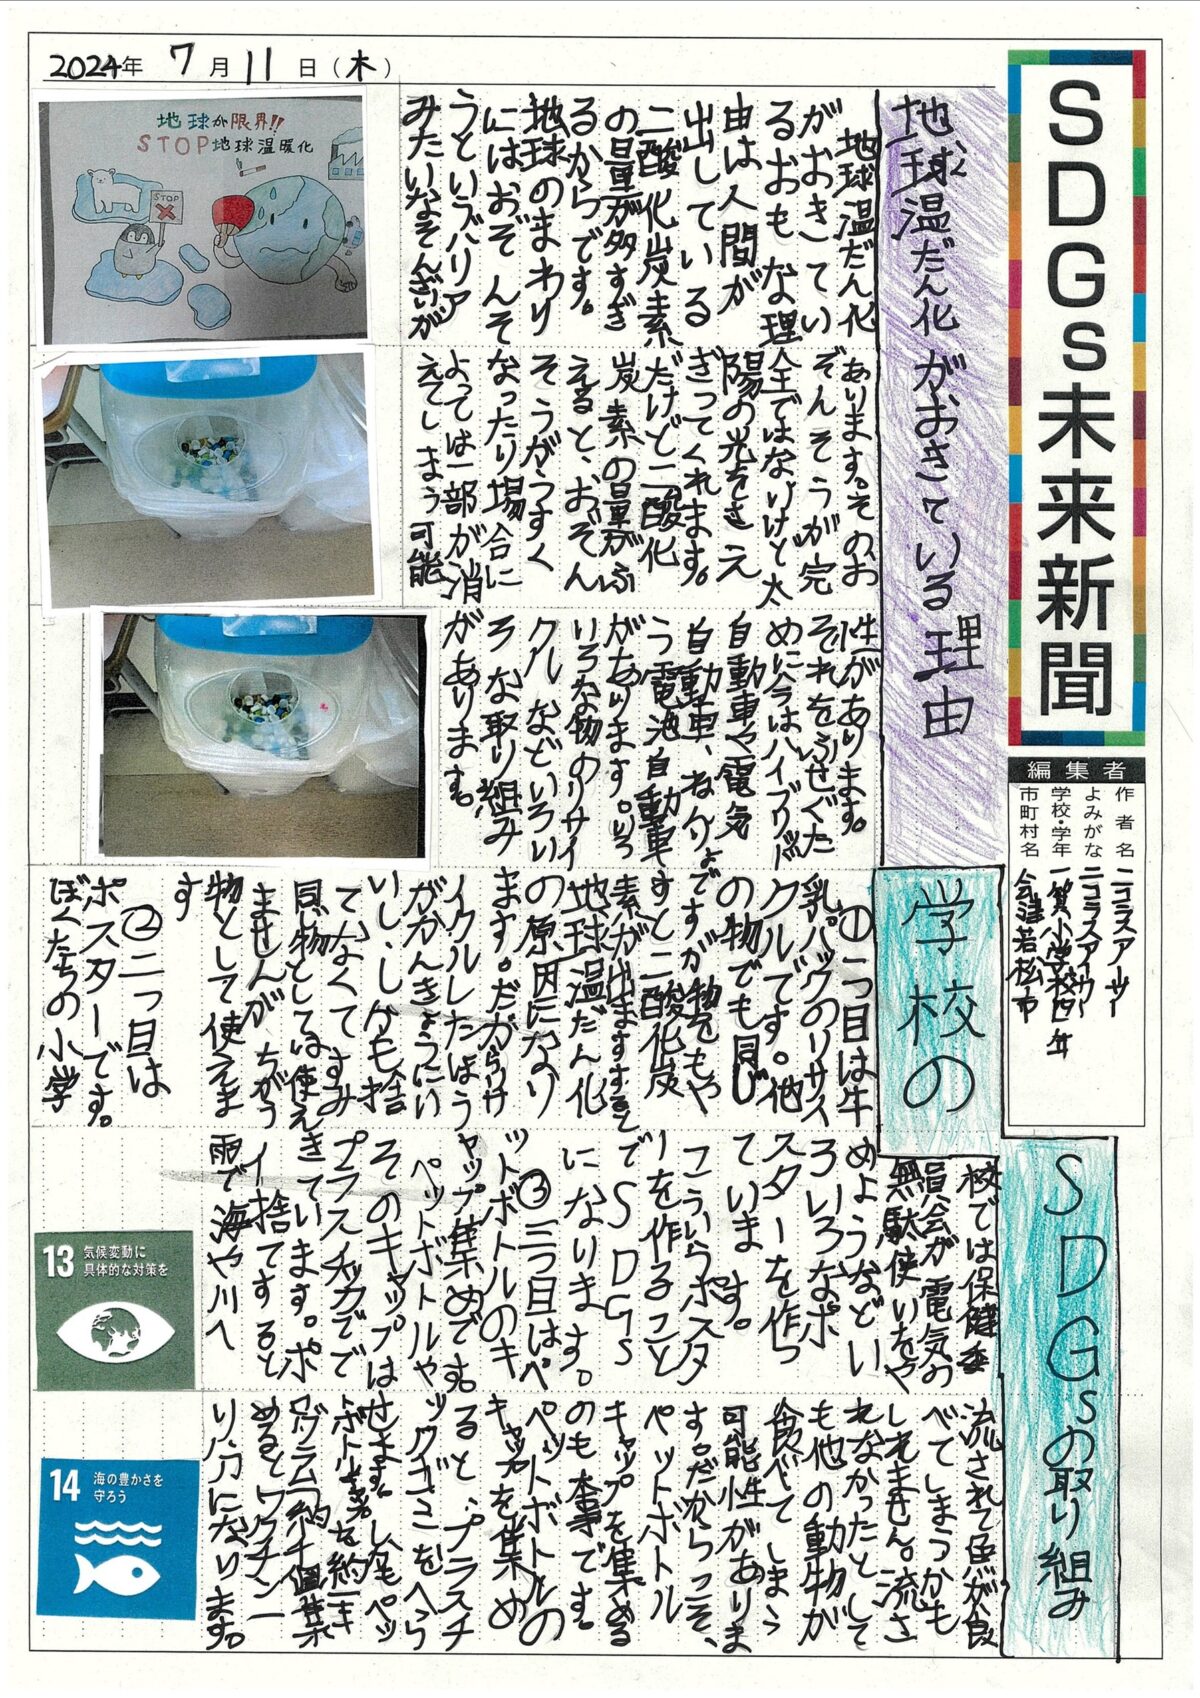 2024年 7月 11日(木)
SDGs未来新聞
編集者
作者名 ニコラスアーサー
よみがな ニコラスアーサー
学校・学年 一箕小学校四年
市町村名 会津若松市
地球温だん化がおきている理由
地球温だん化
がおきてい
るおもな理
由は人間が
出している
二酸化炭素
の量が多すぎ
るからです。
地球のまわり
にはおぞんそ
うというバリア
みたいなそんざいが
あります。そのお
ぞんそうが完
全ではないけど太
陽の光をさえ
ぎってくれます。
だけど二酸化
炭素の量がふ
えると、おぞん
そうがうすく
なったり場合に
よっては一部が消
えてしまう可能
性があります。
それをふせぐた
めに今はハイブリッド
自動車や電気
自動車、ねんりょ
う電池自動車
があります。いろ
いろな物のリサイ
クルなどいろい
ろな取り組み
があります。
地球が限界!!
STOP地球温暖化
STOP
学校の
SDGsの取り組み
①一つ目は牛
乳パックのリサイ
クルです。他
の物でも同じ
ですが物をもや
すと二酸化炭
素が出ますすると
地球温だん化
の原因になり
ます。だからリサ
イクルしたほう
がかんきょうにい
いし、しかも捨
てなくてすみ
同じ物としては使え
ませんがちがう
物として使えま
す
②二つ目は
ポスターです。
ぼくたちの小学
校では保健委
員会が電気の
無駄使いをや
めようなどい
ろいろなポ
スターを作っ
ています。
こういうポスタ
ーを作ること
でSDGs
になります。
③三つ目はペ
ットボトルのキ
ャップ集めです。
ペットボトルや
そのキャップは
プラスチックでで
きています。ポ
イ捨てすると
雨で海や川へ
流されて魚が食
べてしまうかも
しれません。流さ
れなかったとして
も他の動物が
食べてしまう
可能性がありま
す。だからこそ、
ペットボトル
キャップを集める
のも大事です。
ペットボトルの
キャップを集め
ると、プラスチ
ックゴミをへら
せます。しかもペッ
トボトルを約二キ
ログラム約千個集
めるとワクチン一
り分になります。
13 気候変動に
具体的な対策を
14 海の豊かさを
守ろう